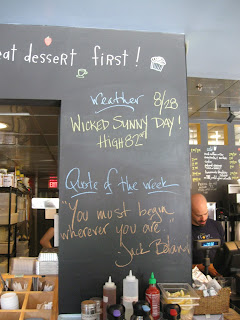 eat dessert first!
Weather 8/28
WICKED SUNNY DAY!
HIGH 82°!
Quote of the week
"You must begin
wherever you are"
Jack Boland